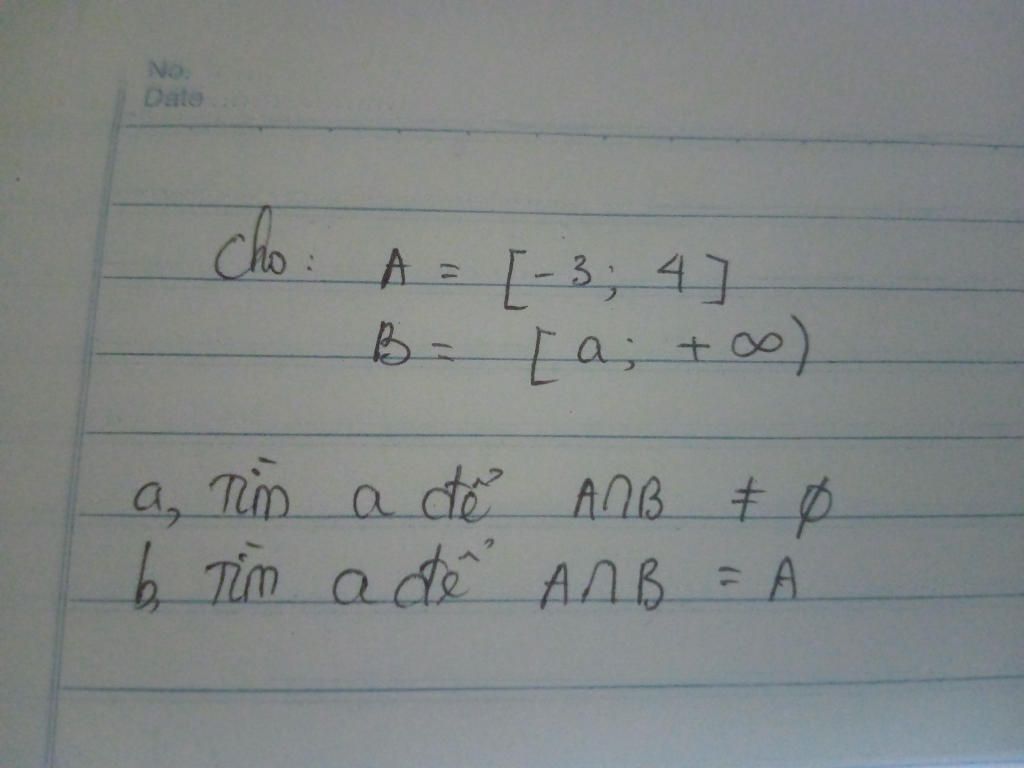 No.
Date
Cho: A = [-3; 4]
B = [a; +∞)
a, Tìm a để A∩B ≠ ∅
b, Tìm a để A∩B = A